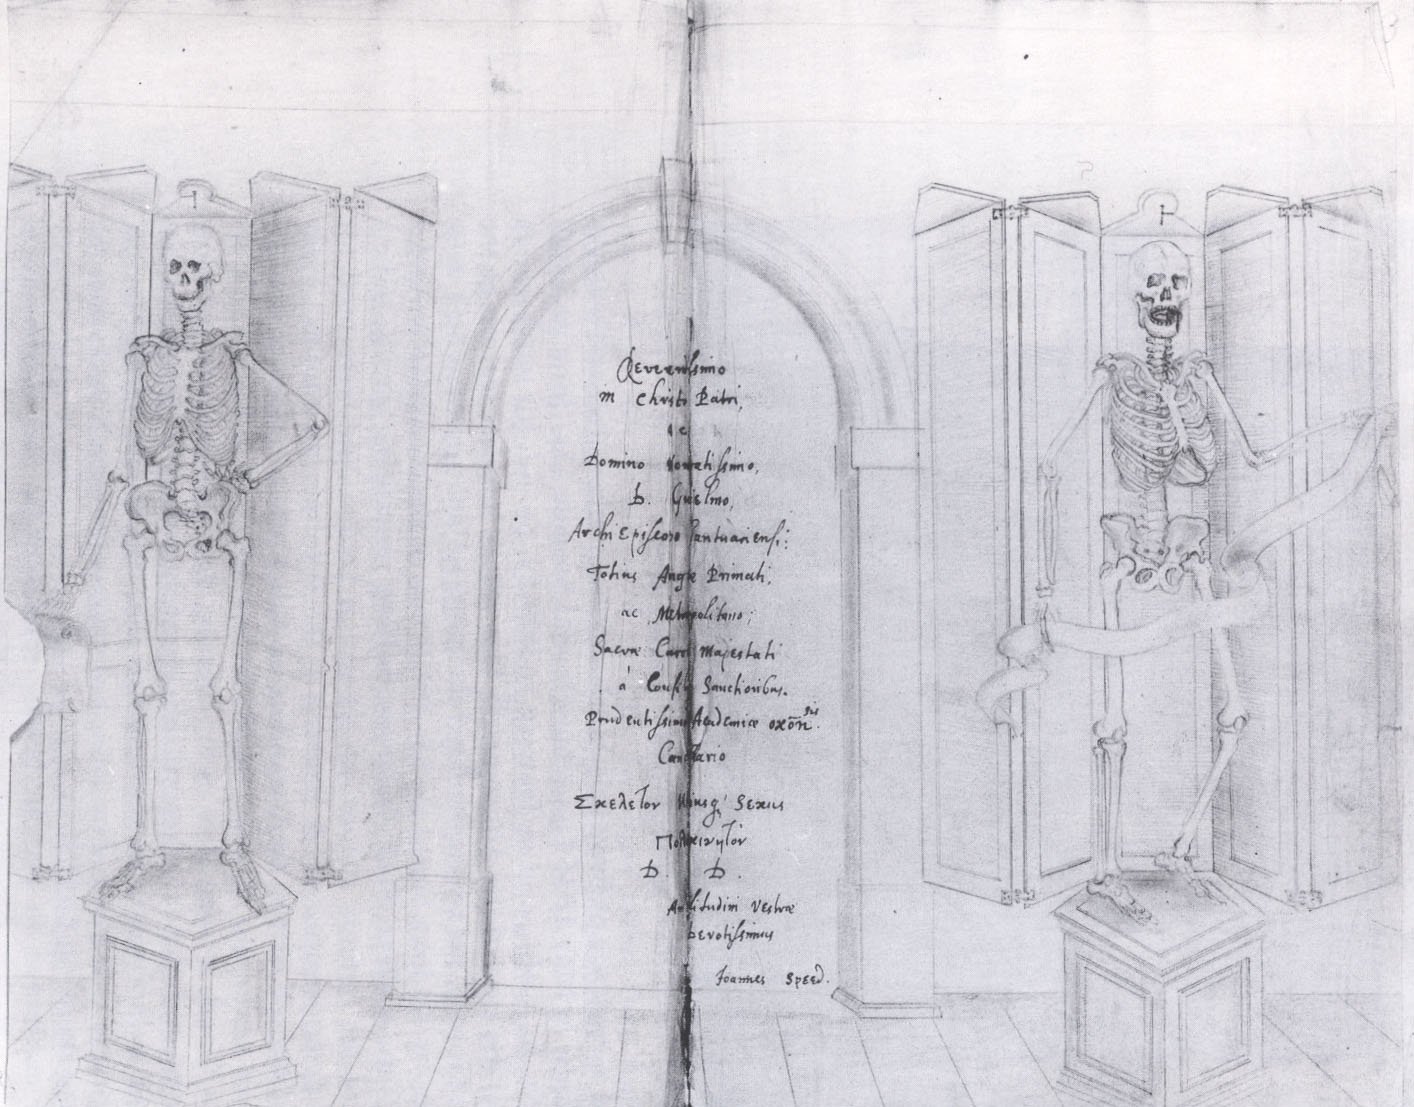 Reverendissimo
in Christo Patri,
ac
Domino Honoratissimo,
D. Guielmo,
ArchiEpiscopo Cantuariensi:
Totius Angliæ Primati,
ac Metropolitano;
Sacræ Caroli Majestati
á Consiliis Sanctioribus.
Prudentissimo Academiæ oxōn sis.
Cancellario
Σκελετον utriusq' sexus
Πολυκινητον
D. D.
Amplitudini Vestræ
Devotissimus
Joannes Speed.